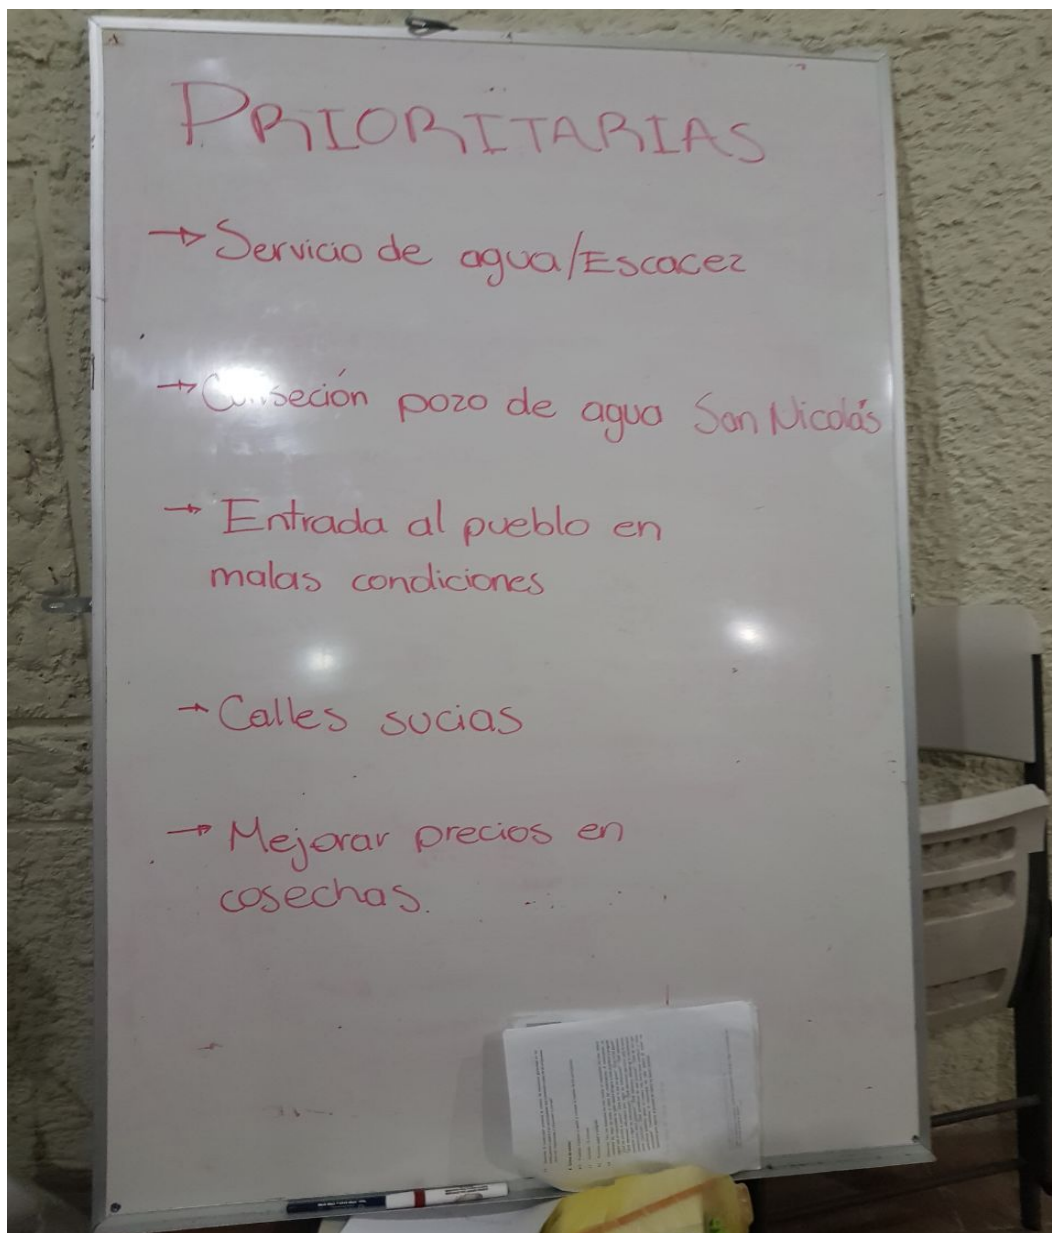 PRIORITARIAS
→ Servicio de agua/Escacez
→ Conseción pozo de agua San Nicolás
→ Entrada al pueblo en
malas condiciones
→ Calles sucias
→ Mejorar precios en
cosechas.